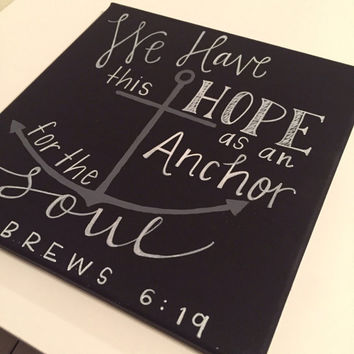 We Have
this HOPE
as an
for the Anchor
soul
BREWS 6:19